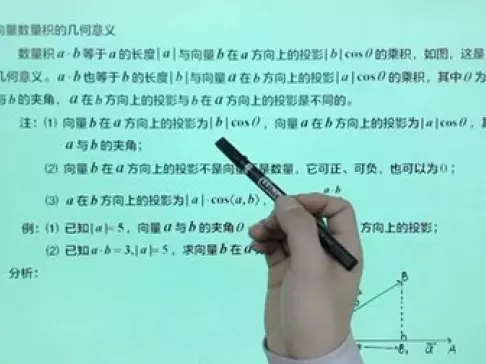 向量数量积的几何意义
数量积a·b等于a的长度|a|与向量b在a方向上的投影|b|cosθ的乘积，如图，这是
几何意义。a·b也等于b的长度|b|与向量a在b方向上的投影|a|cosθ的乘积，其中θ为
与b的夹角，a在b方向上的投影与b在a方向上的投影是不同的。
注：(1) 向量b在a方向上的投影为|b|cosθ，向量a在b方向上的投影为|a|cosθ，
a与b的夹角；
(2) 向量b在a方向上的投影不是向量 是数量，它可正、可负、也可以为0；
(3) a在b方向上的投影为|a|·cos⟨a,b⟩， a·b
例：(1) 已知|a|=5，向量a与b的夹角θ 方向上的投影；
(2) 已知a·b=3,|a|=5，求向量b在a
分析：
B
B₁ a A